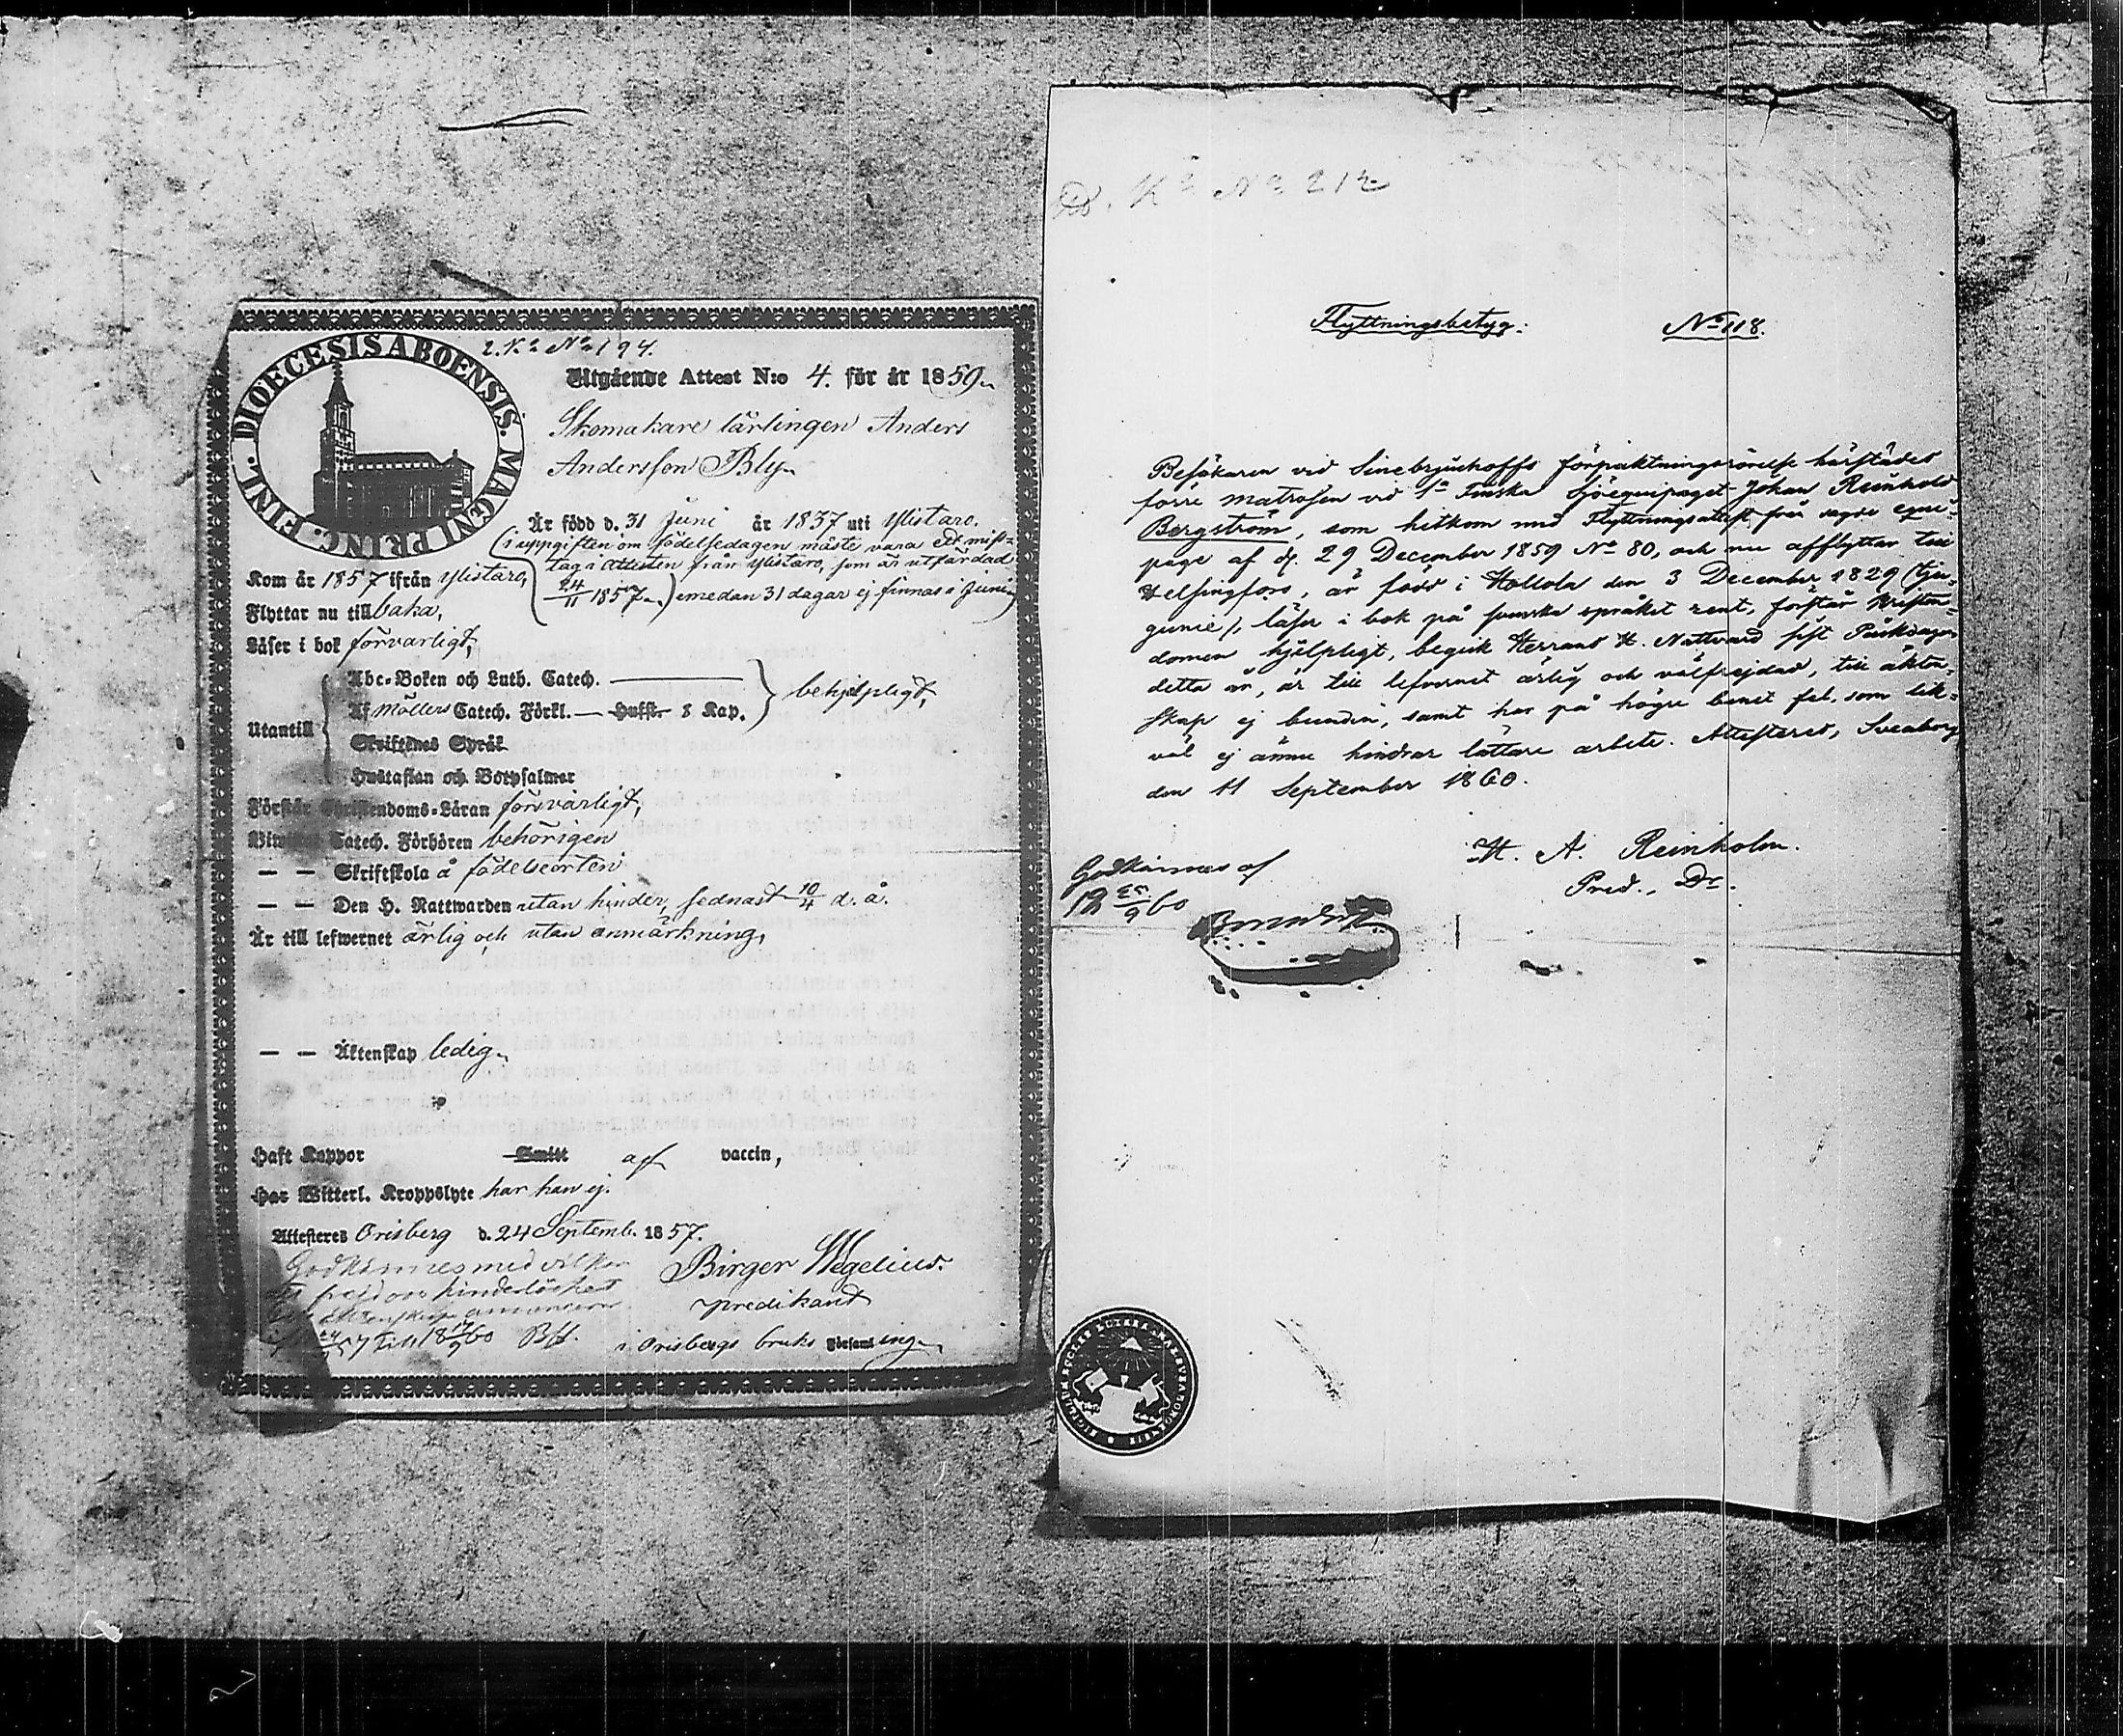 2. Kl. No 194.
FINL. DIOECESIS ABOENSIS. MAGNI PRINC.
Utgående Attest N:o 4. för år 1859.
Skomakare lärlingen Anders
Andersson Bly.
Är född d. 31 Juni år 1837 uti Ylistaro.
(i uppgiften om födelsedagen måste vara ett miss-
tag i attesten från Ylistaro, som är utfärdad
24/11 1857.) emedan 31 dagar ej finnas i Juni
Kom år 1857 ifrån Ylistaro,
Flyttar nu tillbaka,
Läser i bok försvarligt,
Utantill
Abc-Boken och Luth. Catech.
Af Möllers Catech. Förkl. — Husst. 8 Kap.
behjelpligt,
Skriftenes Språk
Hustaflan och Botpsalmer
Förstår Christendoms-Läran försvarligt,
Bivistat Catech. Förhören behörigen
— — Skriftskola å födelseorten
— — Den H. Nattwarden utan hinder, sednast 10/4 d. å.
Är till lefwernet ärlig och utan anmärkning,
— — Äktenskap ledig.
Haft Koppor Smitt af vaccin,
Har Witterl. Kroppslyte har han ej.
Attesteras Orisberg d. 24 Septemb. 1857.
Godkännes med vilkor
Birger Wegelius.
frejd och hinderlöshet
predikant
57 till 18 7/9 60
i Orisbergs bruks Församling
No 212
Flyttningsbetyg: No 118.
Besökaren vid Sinebrychoffs förpaktningsrörelse härstädes
förre matrosen vid 1a Finska Sjöequipaget Johan Reinhold
Bergström, som hitkom med Flyttningsattest från sagde equi-
page af d. 29 December 1859 No 80, och nu afflyttar till
Helsingfors, är född i Hollola den 3 December 1829 (tju-
gunie), läser i bok på svenska språket rent, förstår Kristen-
domen hjelpligt, begick Herrans H. Nattvard sist Påskdagen
detta år, är till lefvernet ärlig och välfrejdad, till äkten-
skap ej bunden, samt har på högra benet fel, som lik-
väl ej ännu hindrar lättare arbete. Attesteras, Sveaborg
den 11 September 1860.
H. A. Reinholm.
Pred., Dr.
Godkännes af